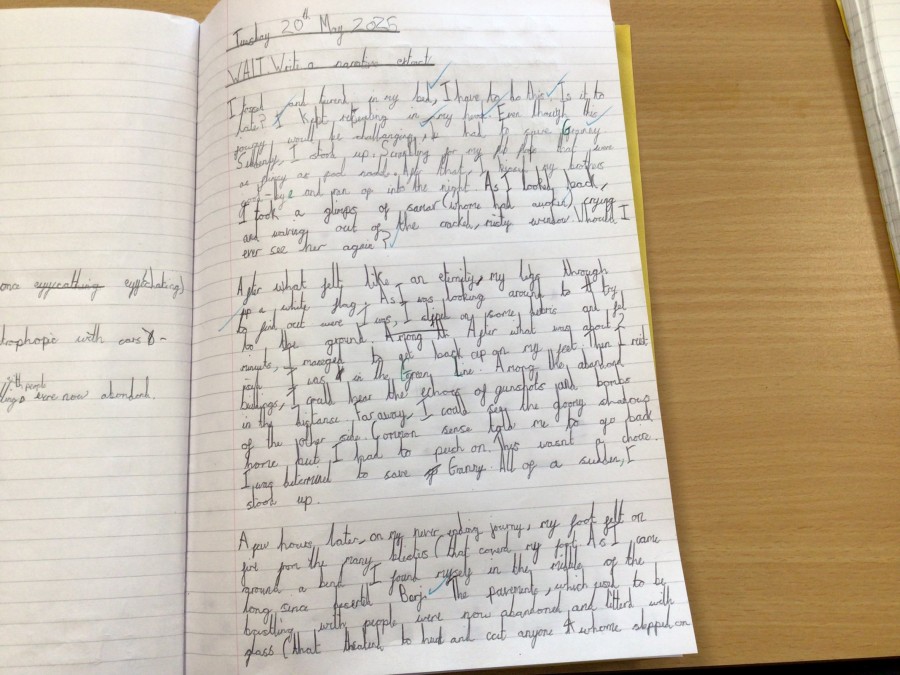 Tuesday 20th May 2025
WALT Write a narrative extract
I tossed and turend in my bed, I have to do this. Is it to
late? I kept repeating in my head. Even through this
jouney would be challanging, I had to save Granny.
Suddenly, I stood up. Scrabling for my that were
as as pool. After that, I my brothers
good-bye and ran of into the night. As I looked back,
I took a glimps of samar (whome had awoken) crying
and waving out of the cracked, risty window. Would I
ever see her again?
After what felt like an eternity, my legs through
up a white flag. As I was looking around to try
to find out were I was, I sliped on some debris and fell
to the ground. Among the After what was about 2
minuets, I managed to get back up on my feet.
I was in the Green line. Among the abandond
buildings, I could hear the echoes of gunshots and bombs
in the distance. Far away, I could see the shadows
of the other side. Common sense told me to go back
home but I had to push on. This wasnt a choice.
I was determind to save Granny. All of a sudden, I
stood up.
A few hours later, on my never ending journey, my foot felt on
fire from the many blisters (that coverd my foot. As I came
around a bend I found myself in the middle of the
long since deserted Borji. The pavements, which used to be
with people were now abandoned and litterd with
glass (that theatend to hurt and cut anyone whome stepped on
once eyecatching eyecatching)
with cars
with people
were now abandond.